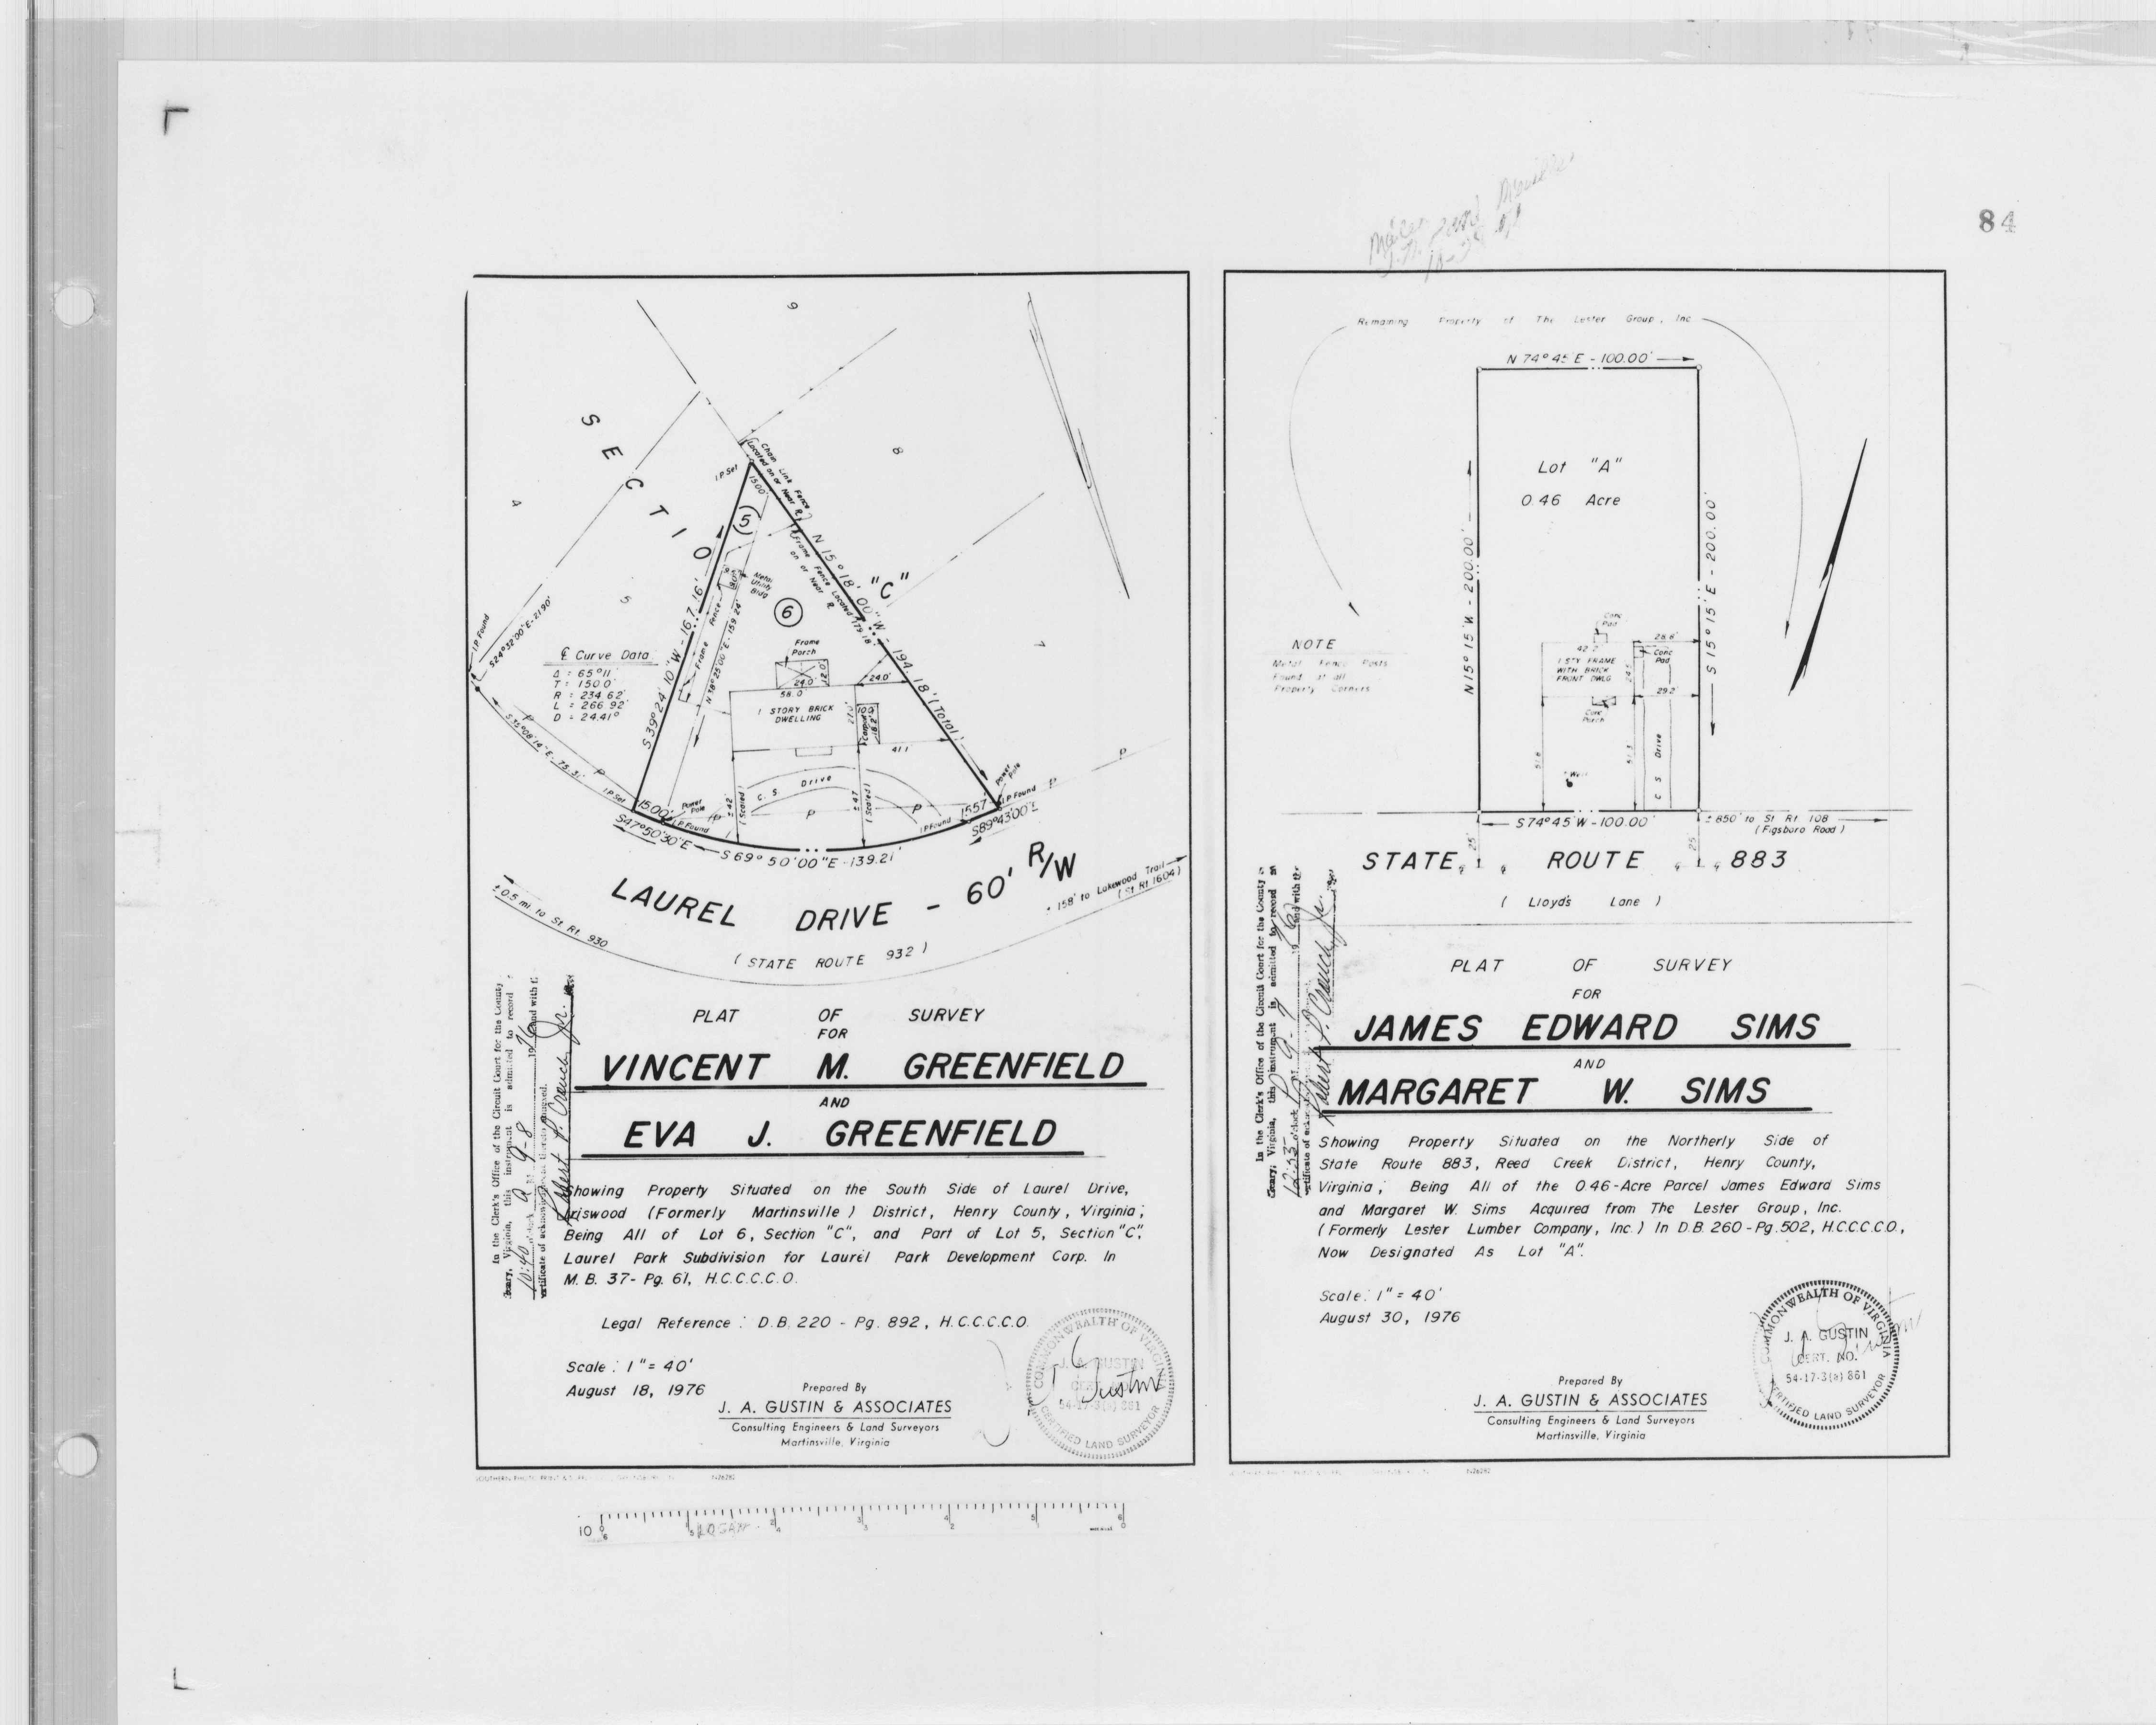 84
SECTION "C"
9
8
7
4
5
I.P. Set
Chain Link Fence
(Located on or Near ℞)
15.00'
(5)
(6)
N 15° 18' 00" W - 194.18' (Total)
179.18'
Frame Fence Located
on or Near ℞
Metal
Utility
Bldg
Frame Fence
S 39° 24' 10" W - 167.16'
N 38° 25' 00" E - 159.24'
I.P. Found
S24°32'00"E-21.90'
℄ Curve Data
Δ = 65°11'
T = 150.0'
R = 234.62'
L = 266.92'
D = 24.41°
Frame
Porch
24.0'
12.0'
58.0'
24.0'
1 STORY BRICK
DWELLING
27.0'
10.0'
Carport
41.1'
S35°08'14"E - 75.31'
P
P
I.P. Set
15.00'
Power
Pole
I.P. Found
C. S. Drive
± 42'
(Scaled)
± 47'
(Scaled)
P
P
P
P
P
Power
Pole
I.P. Found
15.57'
I.P. Found
S47°50'30"E
S 69° 50' 00" E - 139.21'
S89°43'00"E
LAUREL DRIVE - 60' R/W
(STATE ROUTE 932)
± 0.5 mi. to St. Rt. 930
± 158' to Lakewood Trail
(St. Rt. 1604)
In the Clerk's Office of the Circuit Court for the County
Virginia, this instrument is admitted to record
10:40 9-8 1976 and with
certificate of acknowledgment thereto annexed.
PLAT OF SURVEY
FOR
VINCENT M. GREENFIELD
AND
EVA J. GREENFIELD
Showing Property Situated on the South Side of Laurel Drive,
Iriswood (Formerly Martinsville) District, Henry County, Virginia;
Being All of Lot 6, Section "C", and Part of Lot 5, Section "C",
Laurel Park Subdivision for Laurel Park Development Corp. In
M. B. 37- Pg. 61, H.C.C.C.C.O.
Legal Reference : D.B. 220 - Pg. 892, H.C.C.C.C.O.
Scale : 1" = 40'
August 18, 1976
Prepared By
J. A. GUSTIN & ASSOCIATES
Consulting Engineers & Land Surveyors
Martinsville, Virginia
COMMONWEALTH OF VIRGINIA
J. A. GUSTIN
CERT. NO.
54-17-3(a) 861
CERTIFIED LAND SURVEYOR
Remaining Property of The Lester Group, Inc.
N 74° 45' E - 100.00'
Lot "A"
0.46 Acre
N 15° 15' W - 200.00'
S 15° 15' E - 200.00'
NOTE
Metal Fence Posts
Found at all
Property Corners
Conc
Pad
28.8'
1 STY FRAME
WITH BRICK
FRONT DWLG
Conc
Pad
29.2'
Conc
Porch
C S Drive
Well
S 74° 45' W - 100.00'
± 850' to St Rt 108
(Figsboro Road)
25'
25'
STATE ROUTE 883
( Lloyd's Lane )
In the Clerk's Office of the Circuit Court for the County
Virginia, this instrument is admitted to record
PLAT OF SURVEY
FOR
JAMES EDWARD SIMS
AND
MARGARET W. SIMS
Showing Property Situated on the Northerly Side of
State Route 883, Reed Creek District, Henry County,
Virginia; Being All of the 0.46-Acre Parcel James Edward Sims
and Margaret W. Sims Acquired from The Lester Group, Inc.
(Formerly Lester Lumber Company, Inc.) In D.B. 260 - Pg. 502, H.C.C.C.C.O.,
Now Designated As Lot "A".
Scale: 1" = 40'
August 30, 1976
Prepared By
J. A. GUSTIN & ASSOCIATES
Consulting Engineers & Land Surveyors
Martinsville, Virginia
COMMONWEALTH OF VIRGINIA
J. A. GUSTIN
CERT. NO.
54-17-3(a) 861
CERTIFIED LAND SURVEYOR
10